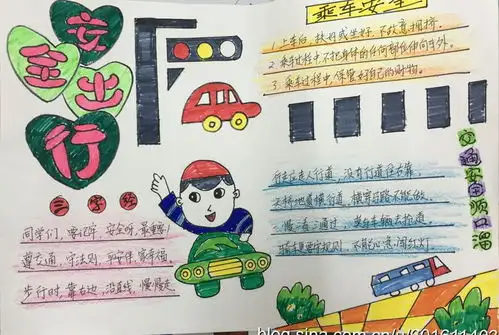 安
全出
行
三字经
同学们，要记牢，安全呀，最重要！
遵交通，守法则，平安保，容幸福。
步行时，靠右边，沿直线，慢慢走
乘车安全
1. 上车后，扶好或坐好，不故意拥挤。
2. 乘车过程中不把身体的任何部位伸向车外。
3. 乘车过程中，保管好自己的财物。
交通安全顺口溜
行走应走人行道，没有行道往右靠
天桥地道横行道，横穿马路不能做。
一慢二看三通过，莫与车辆去抢道
骑车更要守规则，不能心急闯红灯
blog.sina.com.cn/u/601611402